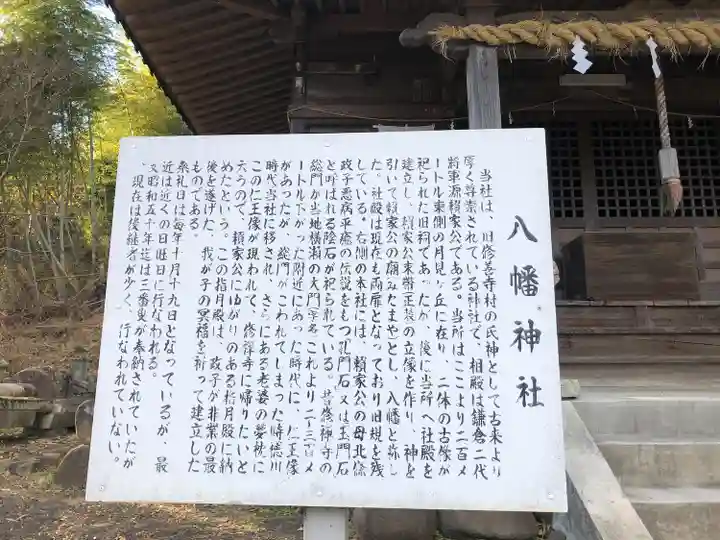 八幡神社
当社は、旧修善寺村の氏神として古来より
厚く尊崇されている神社で、相殿は鎌倉二代
将軍源頼家公である。当所はここより二百メ
ートル東側の月見ヶ丘に在り、二体の古像が
祀られた旧祠であったが、後に当所へ社殿を
建立し、頼家公束帯(正装)の立像を作り、神を
引いて頼家公の廟(みたまや)とし、八幡と称し
た。社殿は現在も両扉となっており旧規を残
している。右側の本社には、頼家公の母北條
政子悪病平癒の伝説をもつ孔門石又は玉門石
と呼ばれる陰石が祀られている。昔修禅寺の
総門が当地横瀬の大門(字名)これより二~三百メ
ートル下がった附近にあった時代に、仁王像
があったが、総門がこわれてしまった時徳川
時代当社に移され、さらにある老婆の夢枕に
この仁王像が現われて、修禅寺に帰りたいと
云うので、頼家公にゆかりのある指月殿に納
めたという。この指月殿は、政子が非業の最
後を遂げた、我が子の冥福を祈って建立した
ものである。
祭礼日は毎年十月十九日となっているが、最
近は近くの日曜日に行なわれる。
又昭和五十年迄は三番叟が奉納されていたが
、現在は後継者が少く、行なわれていない。